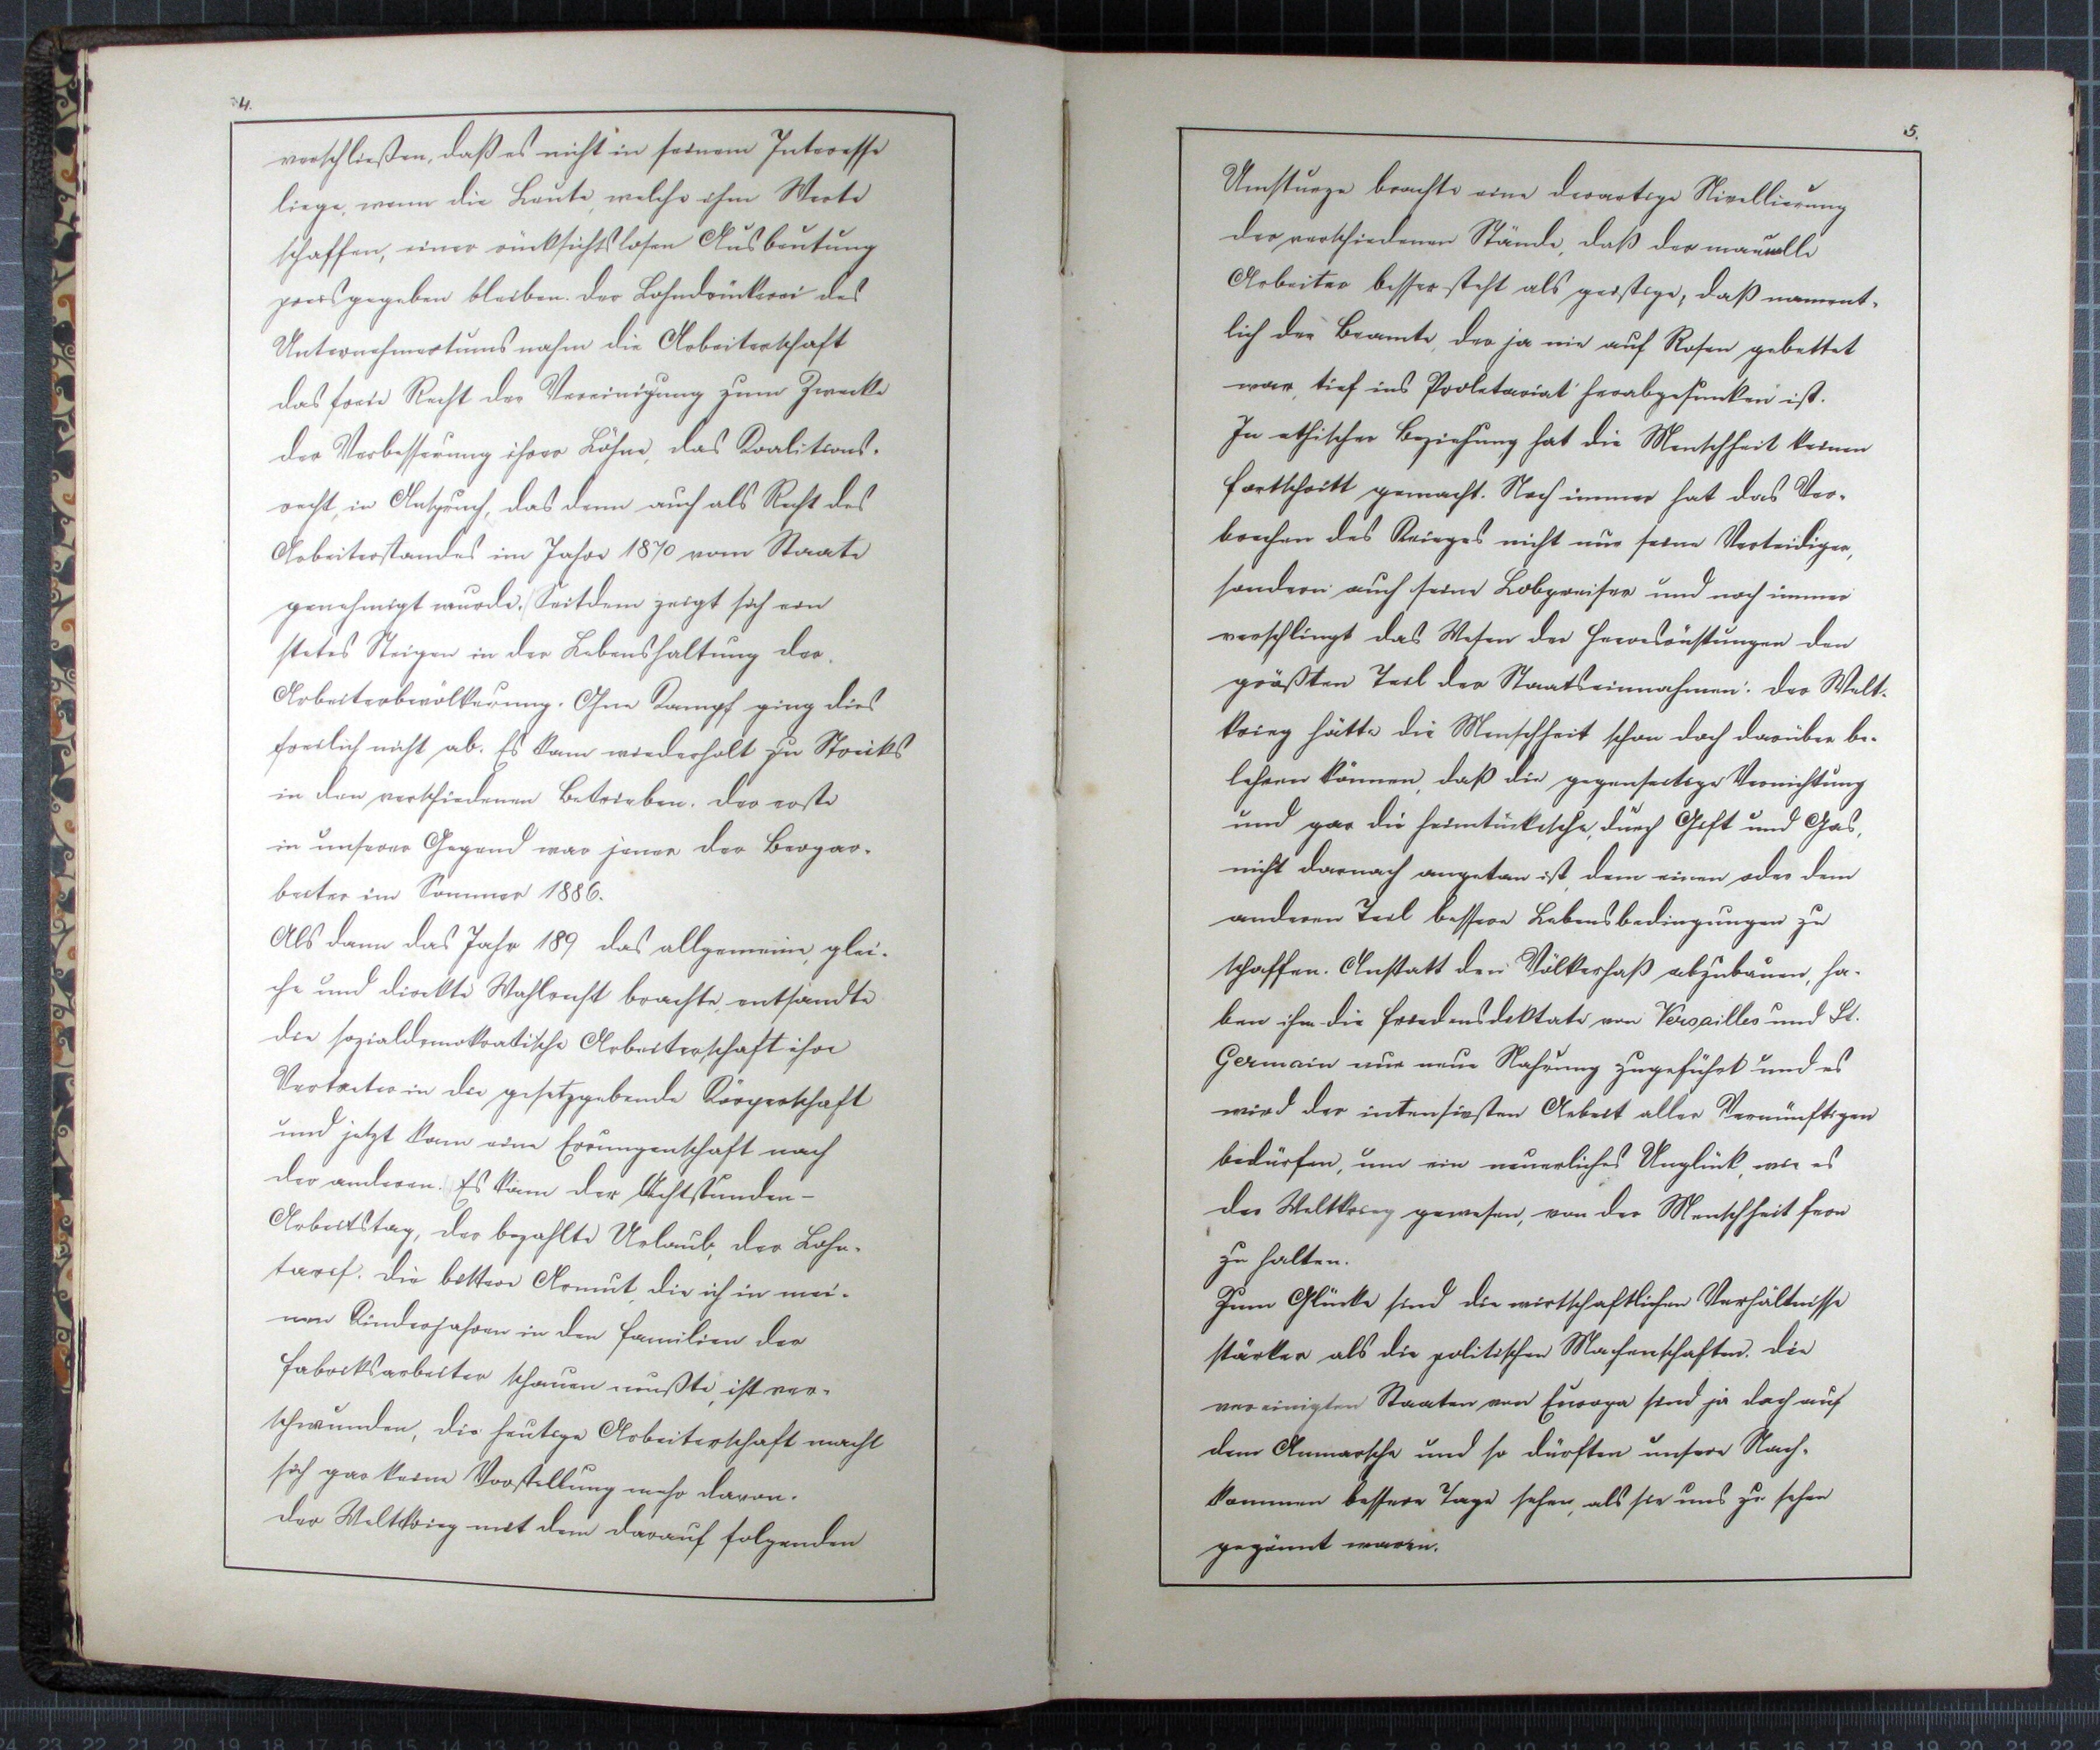 4.
verschließen, daß es nicht in seinem Interesse
liege, wenn die Leute, welche ihm Werte
schaffen, einer rücksichtslosen Ausbeutung
preisgegeben bleiben. Der Lohndrückerei des
Unternehmertums nahm die Arbeiterschaft
das freie Recht der Vereinigung zum Zwecke
der Verbesserung ihrer Löhne, das Koalitions-
recht, in Anspruch, das denn auch als Recht des
Arbeiterstandes im Jahre 1870 vom Staate
genehmigt wurde. Seitdem zeigt sich ein
stetes Steigen in der Lebenshaltung der
Arbeiterbevölkerung. Ohne Kampf ging dies
freilich nicht ab. Es kam wiederholt zu Streiks
in den verschiedenen Betrieben. Der erste
in unserer Gegend war jener der Bergar-
beiter im Sommer 1886.
Als dann das Jahr 189 das allgemeine, glei-
che und direkte Wahlrecht brachte, entsandte
die sozialdemokratische Arbeiterschaft ihre
Vertreter in die gesetzgebende Körperschaft
und jetzt kam eine Errungenschaft nach
der anderen. Es kam der Achtstunden-
Arbeitstag, der bezahlte Urlaub, der Lohn-
tarif. Die bittere Armut, die ich in mei-
nen Kinderjahren in den Familien der
Fabriksarbeiter schauen mußte, ist ver-
schwunden, die heutige Arbeiterschaft macht
sich gar keine Vorstellung mehr davon.
Der Weltkrieg mit dem darauf folgenden
5.
Umsturze brachte eine derartige Nivellierung
der verschiedenen Stände, daß der manuelle
Arbeiter besser steht als geistige, daß nament-
lich der Beamte, der ja nie auf Rosen gebettet
war, tief ins Proletariat herabgesunken ist.
In ethischer Beziehung hat die Menschheit keinen
Fortschritt gemacht. Noch immer hat das Ver-
brechen des Krieges nicht nur seine Verteidiger,
sondern auch seine Lobpreiser und noch immer
verschlingt das Wesen der Heeresrüstungen den
größten Teil der Staatseinnahmen. Der Welt-
krieg hätte die Menschheit schon doch darüber be-
lehren können, daß die gegenseitige Vernichtung
und gar die heimtückische, durch Gift und Gas,
nicht darnach angetan ist, dem einen oder dem
anderen Teil bessere Lebensbedingungen zu
schaffen. Anstatt den Völkerhaß abzubauen, ha-
ben ihm die Friedensdiktate von Versailles und St.
Germain nur neue Nahrung zugeführt und es
wird der intensivsten Arbeit aller Vernünftigen
bedürfen, um ein neuerliches Unglück, wie es
der Weltkrieg gewesen, von der Menschheit fern
zu halten.
Zum Glücke sind die wirtschaftlichen Verhältnisse
stärker als die politischen Machenschaften. Die
vereinigten Staaten von Europa sind ja doch auf
dem Anmarsche und so dürften unsere Nach-
kommen bessere Tage sehen, als sie uns zu sehen
gegönnt waren.